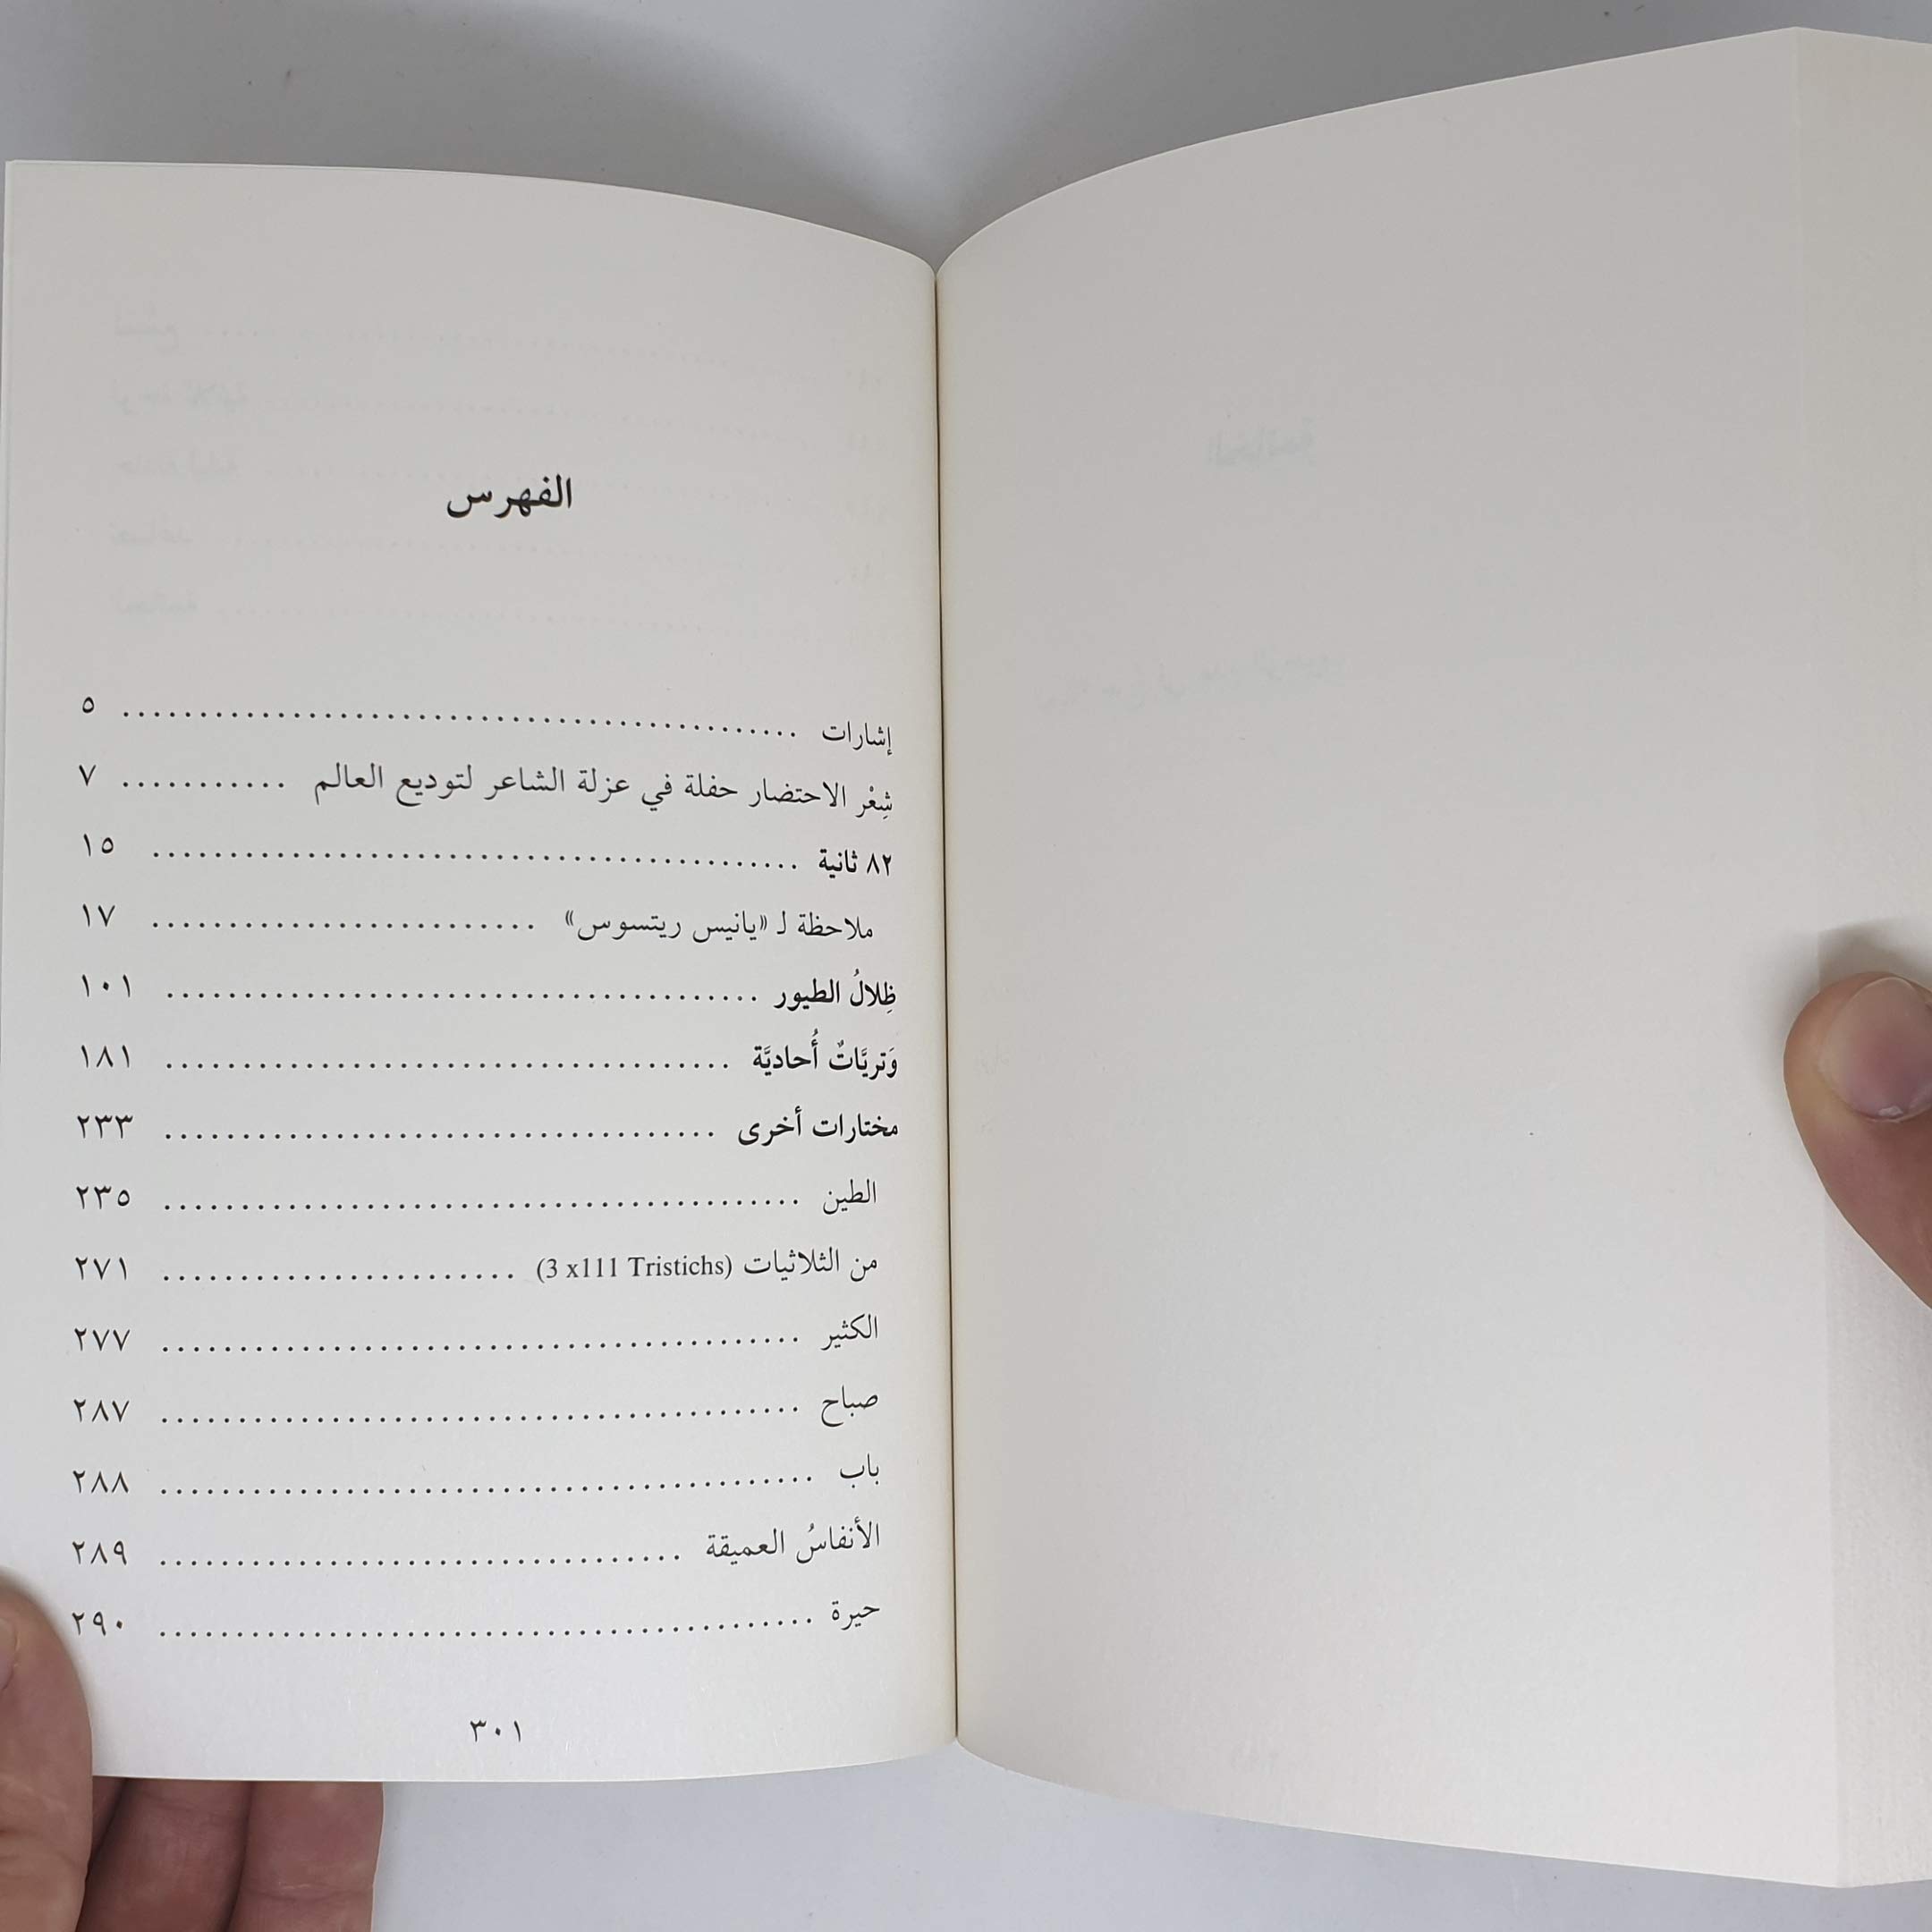 الفهرس
إشارات ........................................... ٥
شِعْر الاحتضار حفلة في عزلة الشاعر لتوديع العالم ........... ٧
٨٢ ثانية .......................................... ١٥
ملاحظة لـ «يانيس ريتسوس» ......................... ١٧
ظِلالُ الطيور ....................................... ١٠١
وَتريَّاتٌ أُحاديَّة ..................................... ١٨١
مختارات أخرى .................................... ٢٣٣
الطين ......................................... ٢٣٥
من الثلاثيات (3 x111 Tristichs) ....................... ٢٧١
الكثير ......................................... ٢٧٧
صباح ......................................... ٢٨٧
باب .......................................... ٢٨٨
الأنفاسُ العميقة .................................. ٢٨٩
حيرة .......................................... ٢٩٠
٣٠١